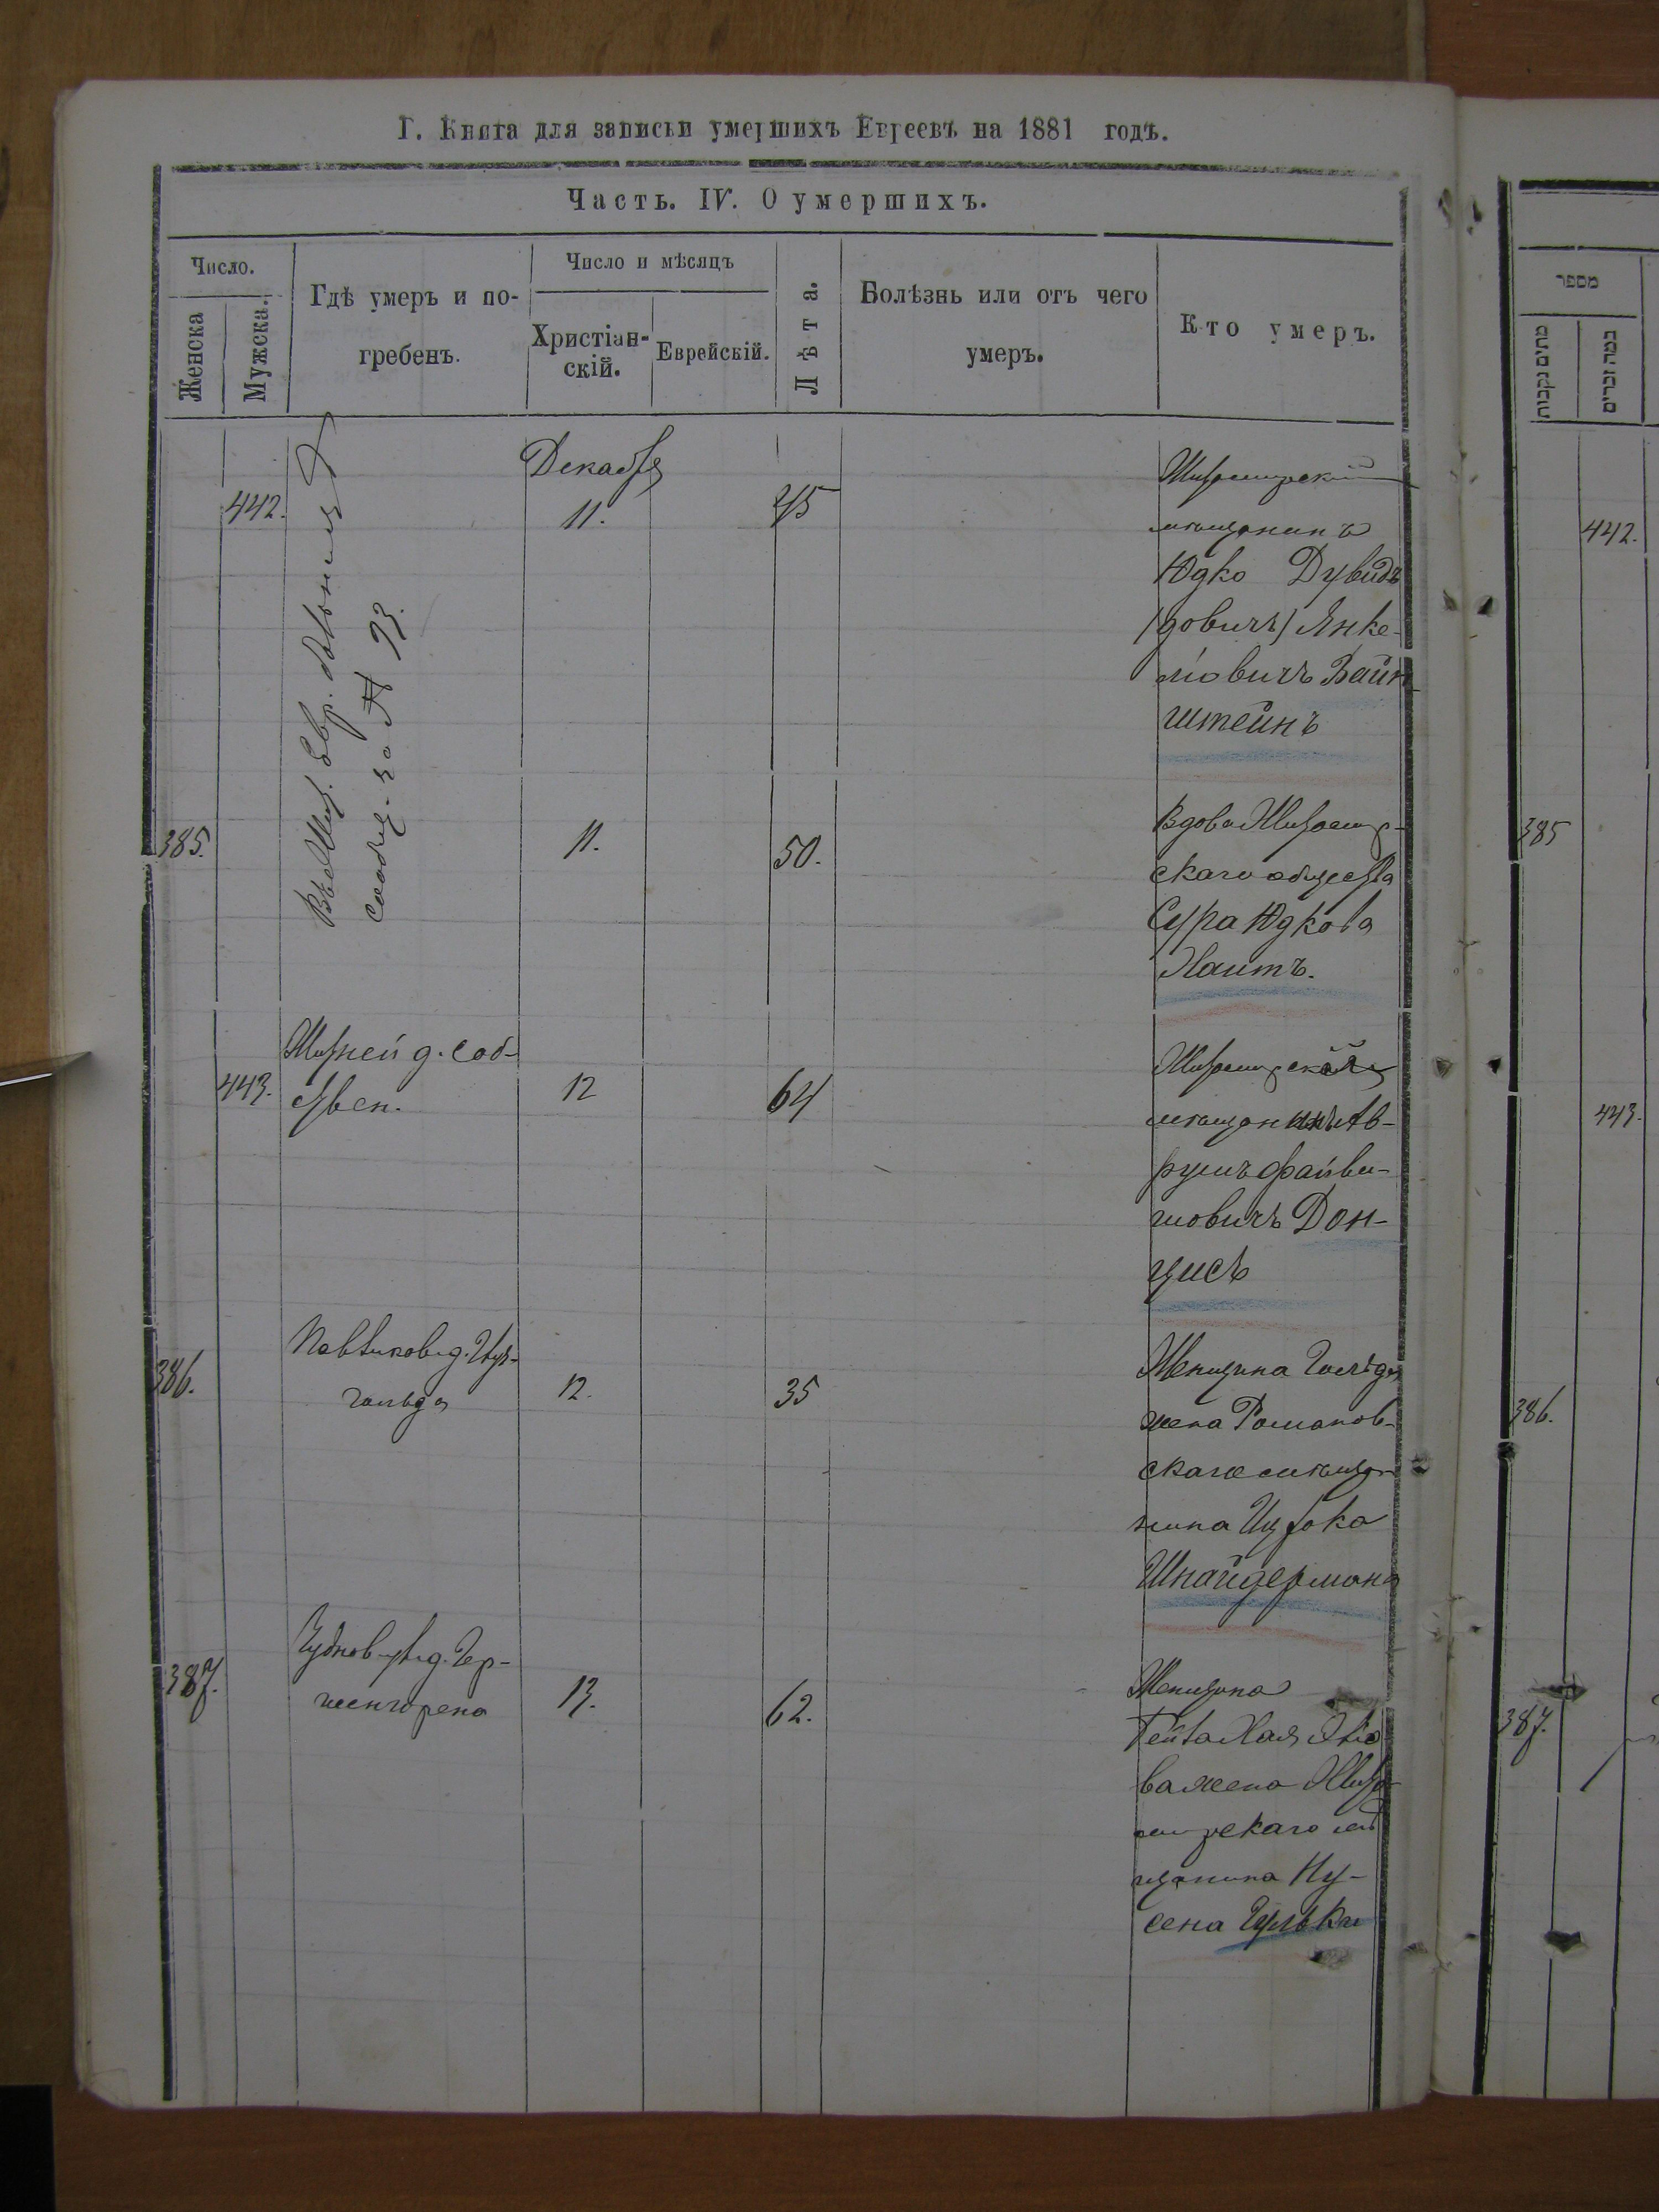 Г. Книга для записки умершихъ Евреевъ на 1881 годъ.
Часть. IV. О умершихъ.
Число.
Женска
Мужска.
Гдѣ умеръ и по-
гребенъ.
Число и мѣсяцъ
Христіан-
скій.
Еврейскій.
Лѣта.
Болѣзнь или отъ чего
умеръ.
Кто умеръ.
Декабря
442.
11.
45
Житомирскій
мѣщанинъ
Юдко Дувидъ
/довичъ/ Янке-
ліовичъ Вайн-
штейнъ
385.
11.
50.
Вдова Житомир-
скаго общества
Сура Юдкова
Хаитъ.
443.
Житней д. соб-
ствен.
12
64
Житомирскій
мѣщанинъ Ав-
румъ Файви-
шовичъ Дон-
цисъ
386.
гольда
12.
35
Женщина Гольда
жена Романов-
скаго мѣща-
нина Ицхока
Шнайдермана
387.
13.
62.
Женщина
Хая
ва жена Жито
мирскаго мѣ
щанина Ну-
сена Гулька
מספר
נקבות
זכרים
442.
385
443.
386.
387.